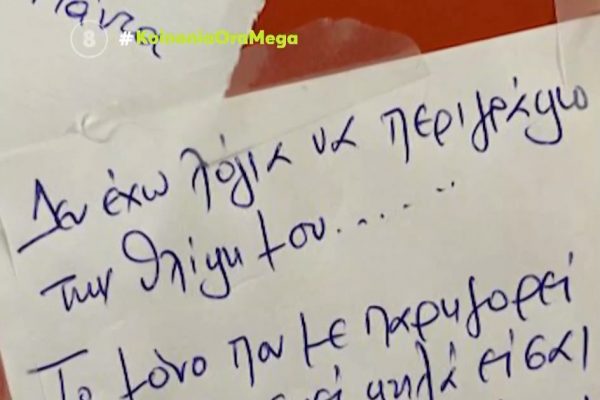 πάντα
8 #KoinoniaOraMega
Δεν έχω λόγια να περιγράψω
την θλίψη μου.......
Το μόνο που με παρηγορεί
ψηλά είσαι